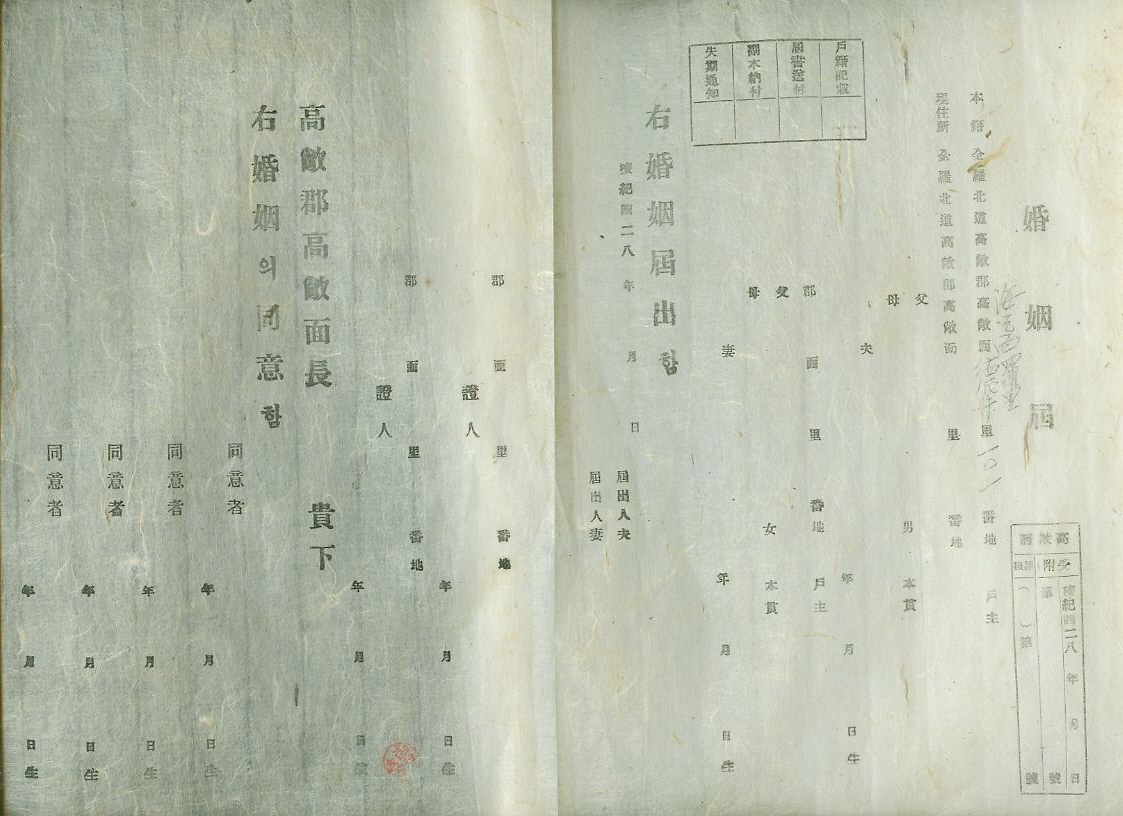 婚姻屆
本籍 全羅北道高敞郡高敞面 里 番地 戶主
現住所 全羅北道高敞郡高敞面 里 番地
父 男 本貫
母
夫 年 月 日生
郡 面 里 番地 戶主
父 女 本貫
母
妻 年 月 日生
右婚姻屆出함
檀紀四二八 年 月 日
屆出人夫
屆出人妻
戶籍記載
屆書送付
副本納付
失期通知
高敞面
受附
檀紀四二八 年 月 日
第 號
( )第 號
郡 面 里 番地
證人 年 月 日生
郡 面 里 番地
證人 年 月 日生
高敞郡高敞面長 貴下
右婚姻의同意함
同意者 年 月 日生
同意者 年 月 日生
同意者 年 月 日生
同意者 年 月 日生